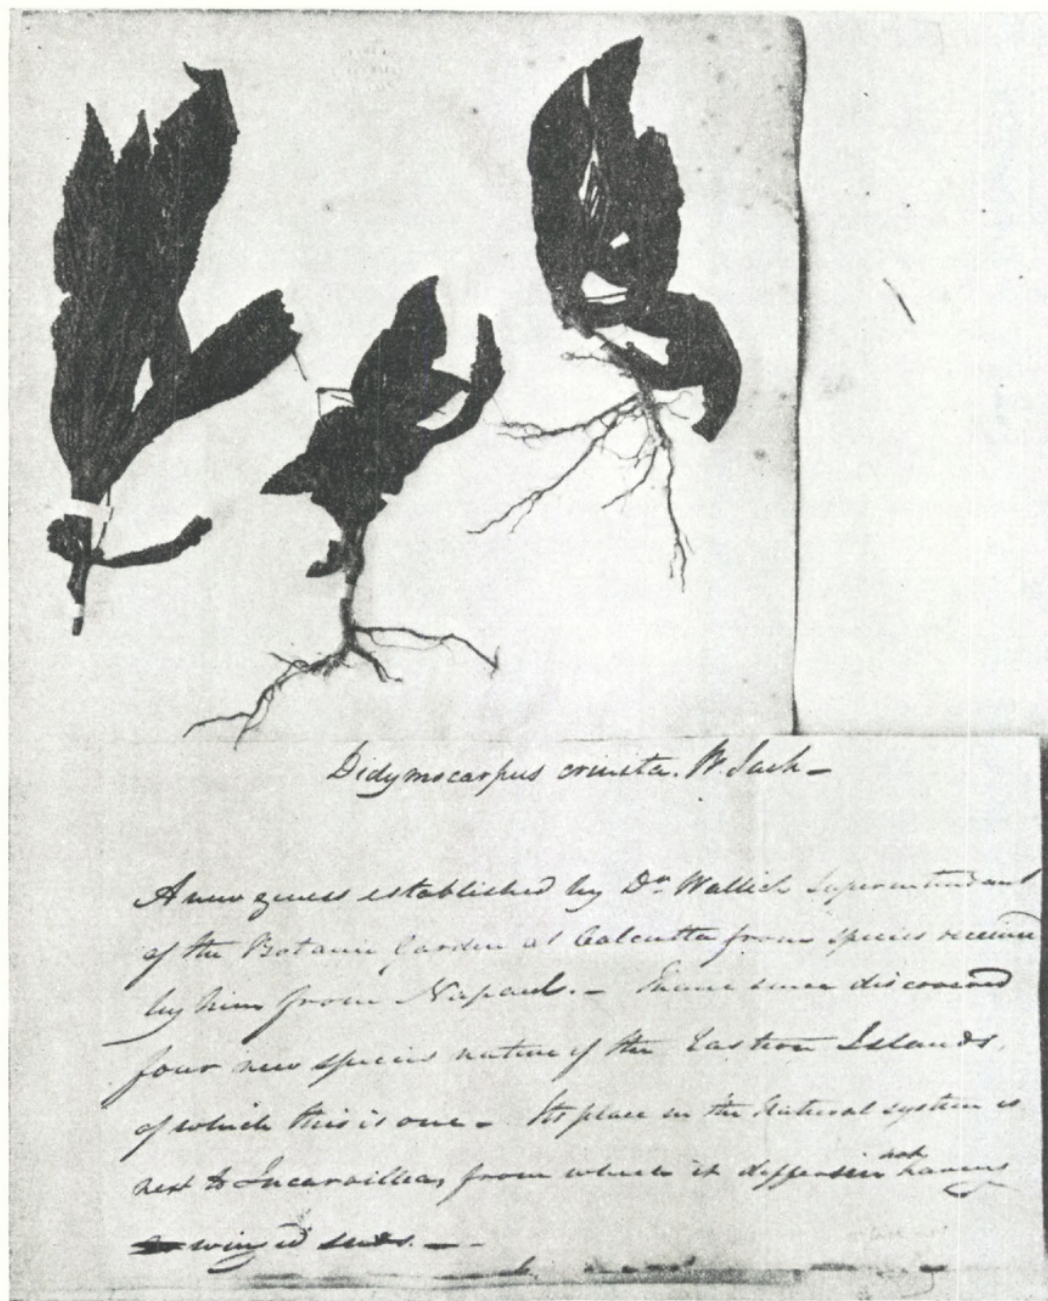 Didymocarpus crinita. W. Jack –
A new genus established by Dr. Wallich Superintendant
of the Botanic Garden at Calcutta from species received
by him from Napaul. – I have since discovered
four new species native of the Eastern Islands,
of which this is one – Its place in the Natural system is
next to Incarvillea, from which it differs in not having
winged seeds. – –